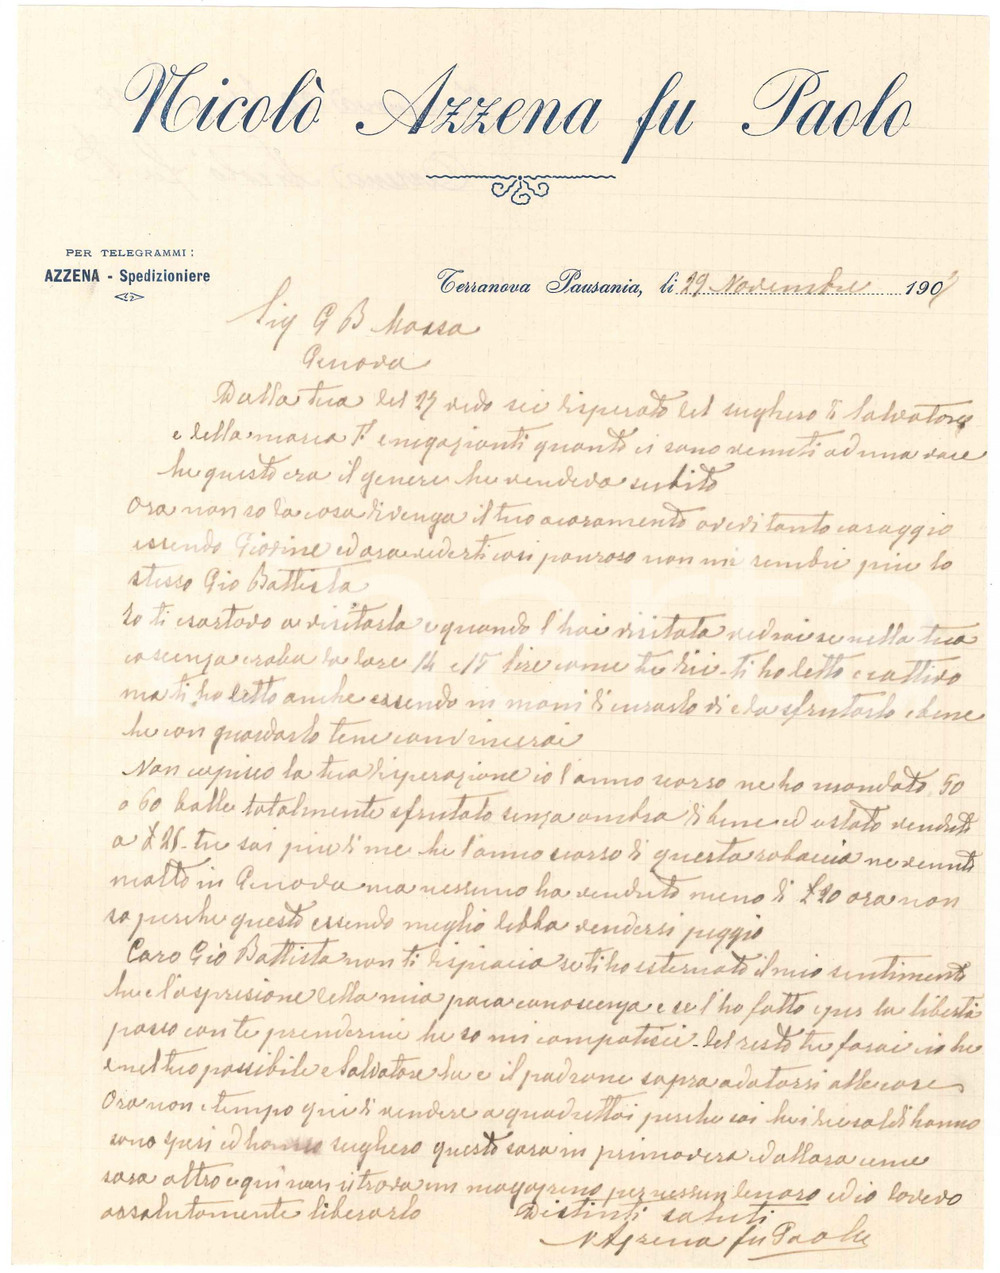 Nicolò Azzena fu Paolo
PER TELEGRAMMI:
AZZENA - Spedizioniere
Terranova Pausania, li 29 Novembre 190
Sig G B Massa
Genova
Dalla tua del 27 vedo sei disperato del sughero di Salvatore
e della marca T. e negozianti quanti ci sono venuti ad una voce
he questo era il genere he vendeva subito
Ora non so da cosa divenga il tuo avevi tanto coraggio
essendo Giovine ed ora vederti cosi pauroso non mi sembri piu lo
stesso Gio Battista
Io ti esortavo a visitarla e quando l'hai visitata vedrai se nella tua
coscenza e roba da dare 14 e 15 lire come tu dici - ti ho detto e cattivo
ma ti ho detto anche essendo in mani di curarlo di e da sfrutarlo e bene
he con guardarlo tene convincerai
Non capisco la tua disperazione io l'anno scorso ne ho mandato 50
o 60 balle totalmente sfrutato senza ombra di bene ed e stato venduto
a £ 25 - tu sai piu di me he l'anno scorso di questa robaccia ne venuto
molto in Genova ma nessuno ha venduto meno di £ 20 ora non
so perche questo essendo meglio debba vendersi peggio
Caro Gio Battista non ti dispiacia se ti ho esternato il mio sentimento
he e l'aspresione della mia poca conoscenza e se l'ho fatto e per la liberta
posso con te prendermi he so mi compatisci - del resto tu farai cio he
e nel tuo possibile e Salvatore he e il padrone sapra adatarsi alle cose
Ora non e tempo qui di vendere a perche cui he i di soldi hanno
sono ed hanno sughero questo sara in primavera ed allora come
sara altro e qui non si trova un magazzeno per nessun denaro ed io dovevo
assolutamente liberarlo
Distinti saluti
N Azzena fu Paolo